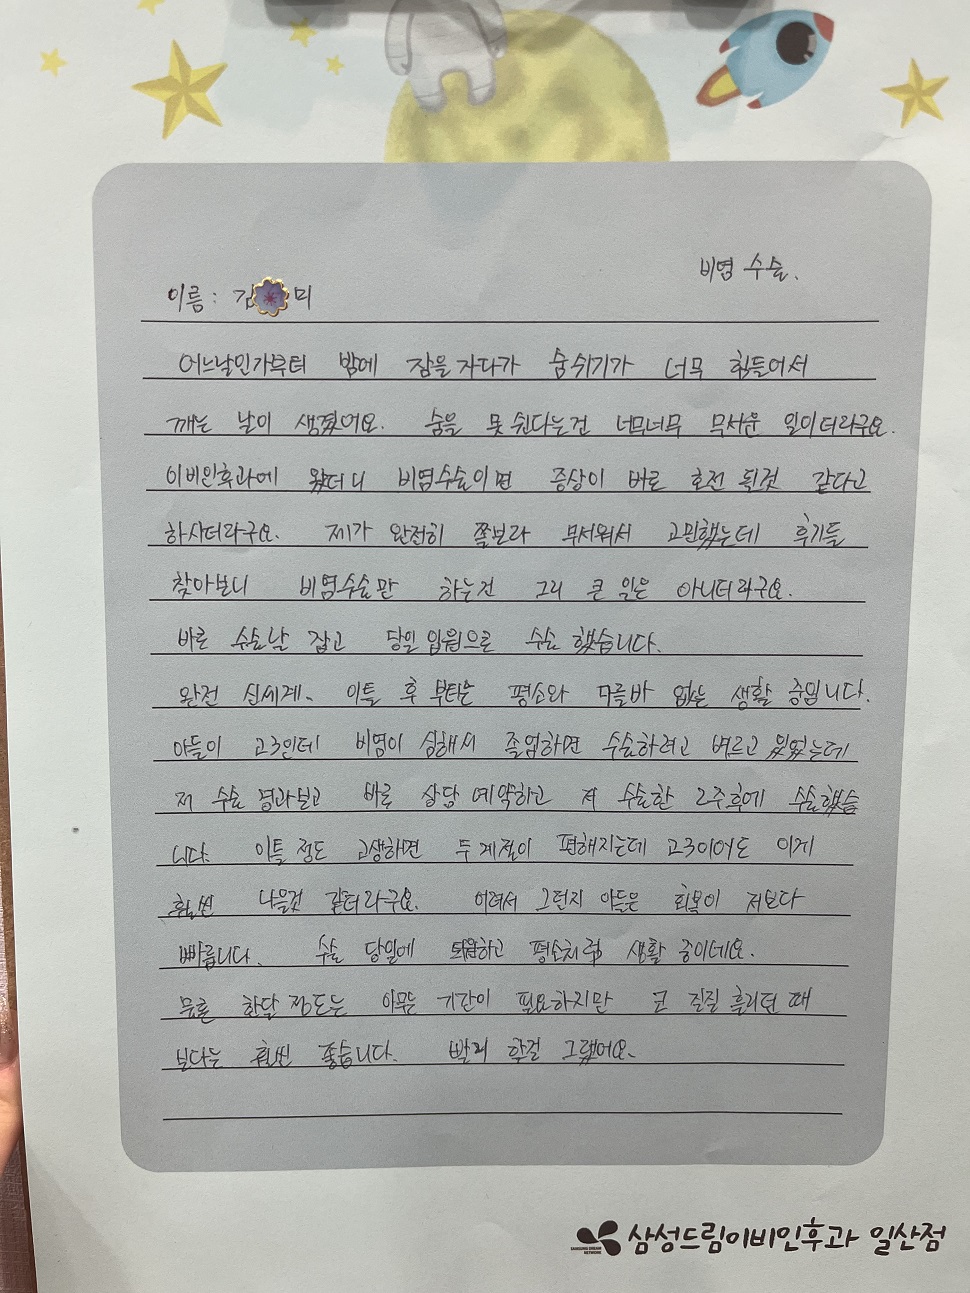 비염 수술.
이름: 김 미
어느날인가부터 밤에 잠을 자다가 숨쉬기가 너무 힘들어서
깨는 날이 생겼어요. 숨을 못 쉰다는건 너무너무 무서운 일이더라구요.
이비인후과에 왔더니 비염수술이면 증상이 바로 호전 될것 같다고
하시더라구요. 제가 완전히 쫄보라 무서워서 고민했는데 후기들
찾아보니 비염수술만 하는건 그리 큰 일은 아니더라구요.
바로 수술날 잡고 당일 입원으로 수술 했습니다.
완전 신세계. 이틀 후 부터는 평소와 다를바 없는 생활 중입니다.
아들이 고3인데 비염이 심해서 졸업하면 수술하려고 벼르고 있었는데
저 수술 결과보고 바로 상담 예약하고 저 수술한 2주후에 수술했습
니다. 이틀 정도 고생하면 두 계절이 편해지는데 고3이어도 이게
훨씬 나을것 같더라구요. 어려서 그런지 아들은 회복이 저보다
빠릅니다. 수술 당일에 퇴원하고 평소처럼 생활 중이네요.
물론 한달 정도는 아무는 기간이 필요하지만 코 질질 흘리던 때
보다는 훨씬 좋습니다. 빨리 할걸 그랬어요.
삼성드림이비인후과 일산점
SAMSUNG DREAM
NETWORK